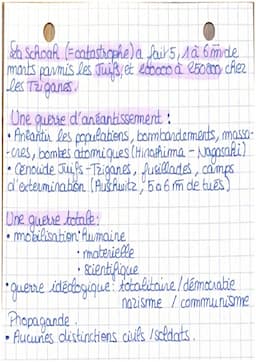 La Schoah (=catastrophe) a fait 5,1 à 6 m de
morts parmis les Juifs, et 200000 à 250000 chez
les Tziganes.
Une guerre d'anéantissement :
• Anéantir les populations, bombardements, massa-
-cres, bombes atomiques (Hiroshima - Nagasaki)
• Génoside Juifs - Tziganes, fusillades, camps
d'extermination (Auswitz, 5 à 6 m de tués)
Une guerre totale :
• mobilisation • humaine
• materielle
• scientifique
• guerre idéologique : totalitaire / démocratie
nazisme / communisme
Propagande.
• Aucunes distinctions civils / soldats.